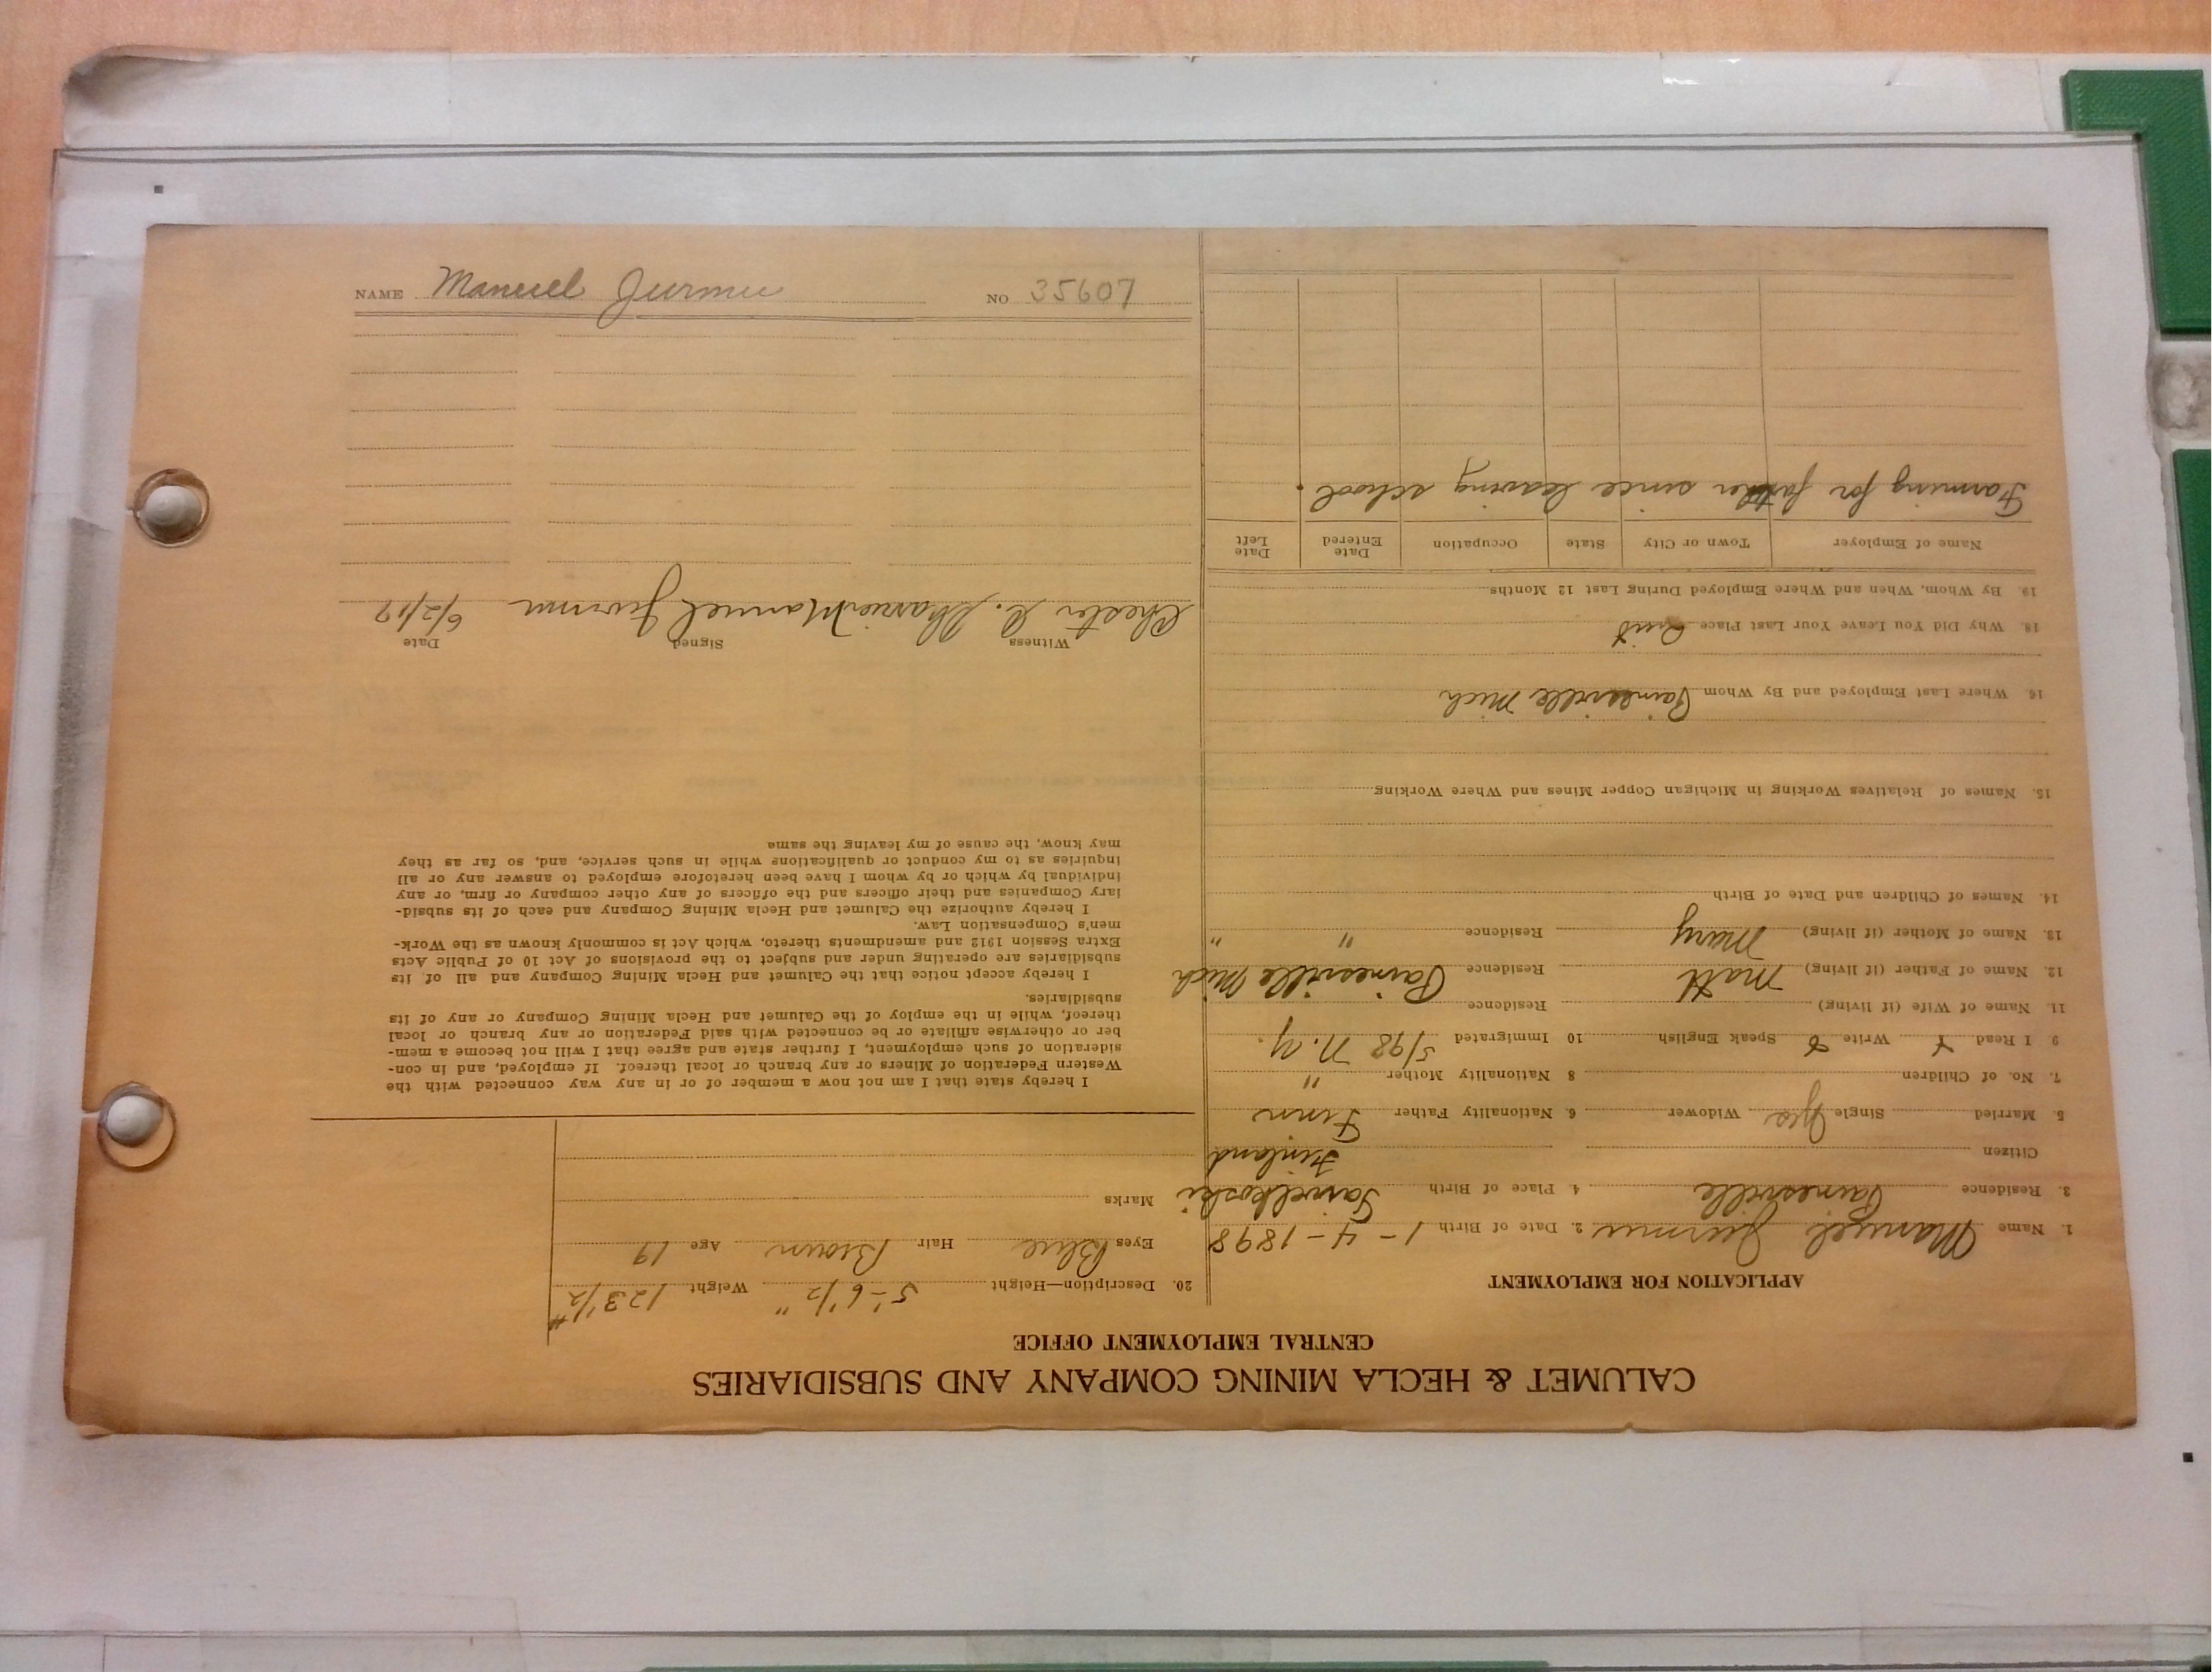 CALUMET & HECLA MINING COMPANY AND SUBSIDIARIES
CENTRAL EMPLOYMENT OFFICE
APPLICATION FOR EMPLOYMENT
1. Name Manuel Jurmu 2. Date of Birth 1-4-1898
3. Residence Painesville 4. Place of Birth
Citizen Finland
5. Married Single Yes Widower 6. Nationality Father Finn
7. No. of Children 8 Nationality Mother "
9 I Read Y Write Speak English 10 Immigrated 5/98 N.Y.
11. Name of Wife (if living) Residence
12. Name of Father (if living) Matt Residence Painesville Mich
13. Name of Mother (if living) Mary Residence " "
14. Names of Children and Date of Birth
15. Names of Relatives Working in Michigan Copper Mines and Where Working
16. Where Last Employed and By Whom Painesville Mich
18. Why Did You Leave Your Last Place Quit
19. By Whom, When and Where Employed During Last 12 Months
Name of Employer Town or City State Occupation Date Entered Date Left
Farming for father since leaving school.
20. Description—Height 5'-6 1/2" Weight 123 1/2 #
Eyes Blue Hair Brown Age 19
Marks
I hereby state that I am not now a member of or in any way connected with the
Western Federation of Miners or any branch or local thereof. If employed, and in con-
sideration of such employment, I further state and agree that I will not become a mem-
ber or otherwise affiliate or be connected with said Federation or any branch or local
thereof, while in the employ of the Calumet and Hecla Mining Company or any of its
subsidiaries.
I hereby accept notice that the Calumet and Hecla Mining Company and all of its
subsidiaries are operating under and subject to the provisions of Act 10 of Public Acts
Extra Session 1912 and amendments thereto, which Act is commonly known as the Work-
men's Compensation Law.
I hereby authorize the Calumet and Hecla Mining Company and each of its subsid-
iary Companies and their officers and the officers of any other company or firm, or any
individual by which or by whom I have been heretofore employed to answer any or all
inquiries as to my conduct or qualifications while in such service, and, so far as they
may know, the cause of my leaving the same
Witness Signed Date
Chester C. Manuel Jurmu 6/2/17
NAME Manuel Jurmu NO 35607